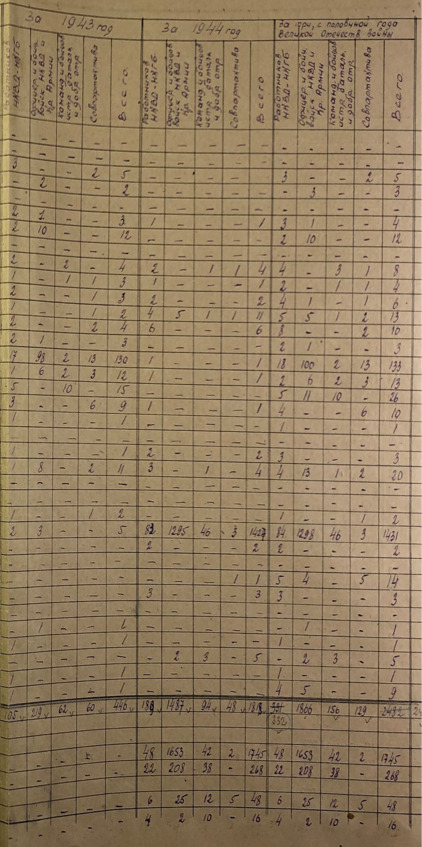 за 1943 год | За 1944 год | за три, с половиной года Великой Отечеств. войны
НКВД-НКГБ | Офицер. и бойц. войск НКВД и Кр. Армии | Команд. и бойцов истр. баталь. и добр. отр. | Совпартактива | Всего | Работников НКВД-НКГБ | Офицер. и бойцов войск НКВД и Кр. Армии | Команд. и бойцов истр. баталь. и добр. отр. | Совпартактива | Всего | Работников НКВД-НКГБ | Офицер. и бойц. войск НКВД и Кр. Армии | Команд. и бойцов истр. баталь. и добр. отр. | Совпартактива | Всего
- | - | - | 2 | 5 | - | - | - | - | - | 3 | - | - | 2 | 5
- | 2 | - | - | 2 | - | - | - | - | - | - | 3 | - | - | 3
2 | 1 | - | - | 3 | 1 | - | - | - | 1 | 3 | 1 | - | - | 4
2 | 10 | - | - | 12 | - | - | - | - | - | 2 | 10 | - | - | 12
2 | - | 2 | - | 4 | 2 | - | 1 | 1 | 4 | 4 | - | 3 | 1 | 8
1 | - | 1 | 1 | 3 | 1 | - | - | - | 1 | 2 | - | 1 | 1 | 4
2 | - | - | 1 | 3 | 2 | - | - | - | 2 | 4 | 1 | - | 1 | 6
1 | - | - | 1 | 2 | 4 | 5 | 1 | 1 | 11 | 5 | 5 | 1 | 2 | 13
2 | - | - | 2 | 4 | 6 | - | - | - | 6 | 8 | - | - | 2 | 10
2 | 1 | - | - | 3 | - | - | - | - | - | 2 | 1 | - | - | 3
17 | 98 | 2 | 13 | 130 | 1 | - | - | - | 1 | 18 | 100 | 2 | 13 | 133
1 | 6 | 2 | 3 | 12 | 1 | - | - | - | 1 | 2 | 6 | 2 | 3 | 13
5 | - | 10 | - | 15 | - | - | - | - | - | 5 | 11 | 10 | - | 26
3 | - | - | 6 | 9 | 1 | - | - | - | 1 | 4 | - | - | 6 | 10
1 | - | - | - | 1 | - | - | - | - | - | 1 | - | - | - | 1
1 | - | - | - | 1 | 2 | - | - | - | 2 | 3 | - | - | - | 3
1 | 8 | - | 2 | 11 | 3 | - | 1 | - | 4 | 4 | 13 | 1 | 2 | 20
1 | - | - | 1 | 2 | - | - | - | - | - | 1 | - | - | 1 | 2
2 | 3 | - | - | 5 | 83 | 1295 | 46 | 3 | 1427 | 84 | 1298 | 46 | 3 | 1431
- | - | - | - | - | 2 | - | - | - | 2 | 2 | - | - | - | 2
- | - | - | - | - | - | - | - | 1 | 1 | 5 | 4 | - | 5 | 14
- | - | - | - | - | 3 | - | - | - | 3 | 3 | - | - | - | 3
- | 1 | - | - | 1 | - | - | - | - | - | - | 1 | - | - | 1
1 | - | - | - | 1 | - | - | - | - | - | 1 | - | - | - | 1
- | - | - | - | - | - | 2 | 3 | - | 5 | - | 2 | 3 | - | 5
1 | - | - | - | 1 | - | - | - | - | - | 1 | - | - | - | 1
1 | - | - | - | 1 | - | - | - | - | - | 4 | 5 | - | - | 9
105 | 219 | 62 | 60 | 446 | 189 | 1487 | 94 | 48 | 1818 | 1806 | 156 | 129
332
48 | 1653 | 42 | 2 | 1745 | 48 | 1653 | 42 | 2 | 1745
22 | 208 | 38 | - | 268 | 22 | 208 | 38 | - | 268
6 | 25 | 12 | 5 | 48 | 6 | 25 | 12 | 5 | 48
4 | 2 | 10 | - | 16 | 4 | 2 | 10 | - | 16